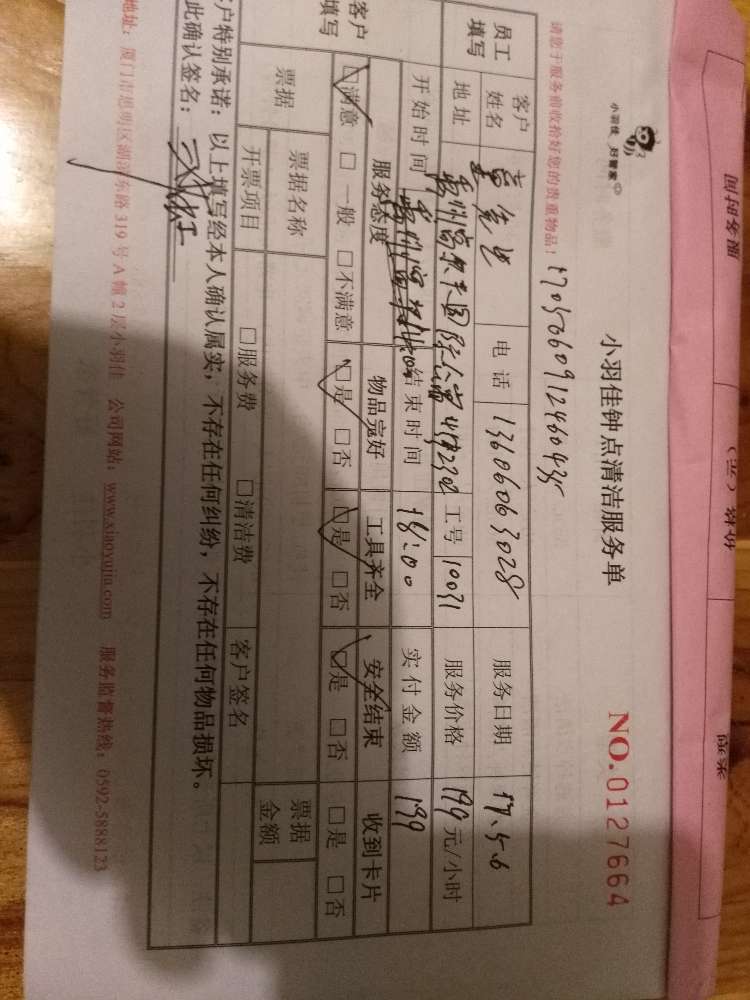 小羽佳 好管家
小羽佳钟点清洁服务单
NO.0127664
请您于服务前收拾好您的贵重物品！
员工填写 客户姓名 电话 13606063028 服务日期 17.5.6
地址 工号 10031 服务价格 199 元/小时
开始时间 结束时间 18:00 实付金额 199
客户填写 服务态度 物品完好 工具齐全 安全结束 收到卡片
☑满意 □一般 □不满意 ☑是 □否 ☑是 □否 ☑是 □否 □是 □否
票据 票据名称 票据金额
开票项目 □服务费 □清洁费 客户签名
客户特别承诺：以上填写经本人确认属实，不存在任何纠纷，不存在任何物品损坏。
此确认签名：
地址：厦门市思明区湖滨东路 319 号 A 幢 2 层小羽佳 公司网站：www.xiaoyujia.com 服务监督热线：0592-5888123